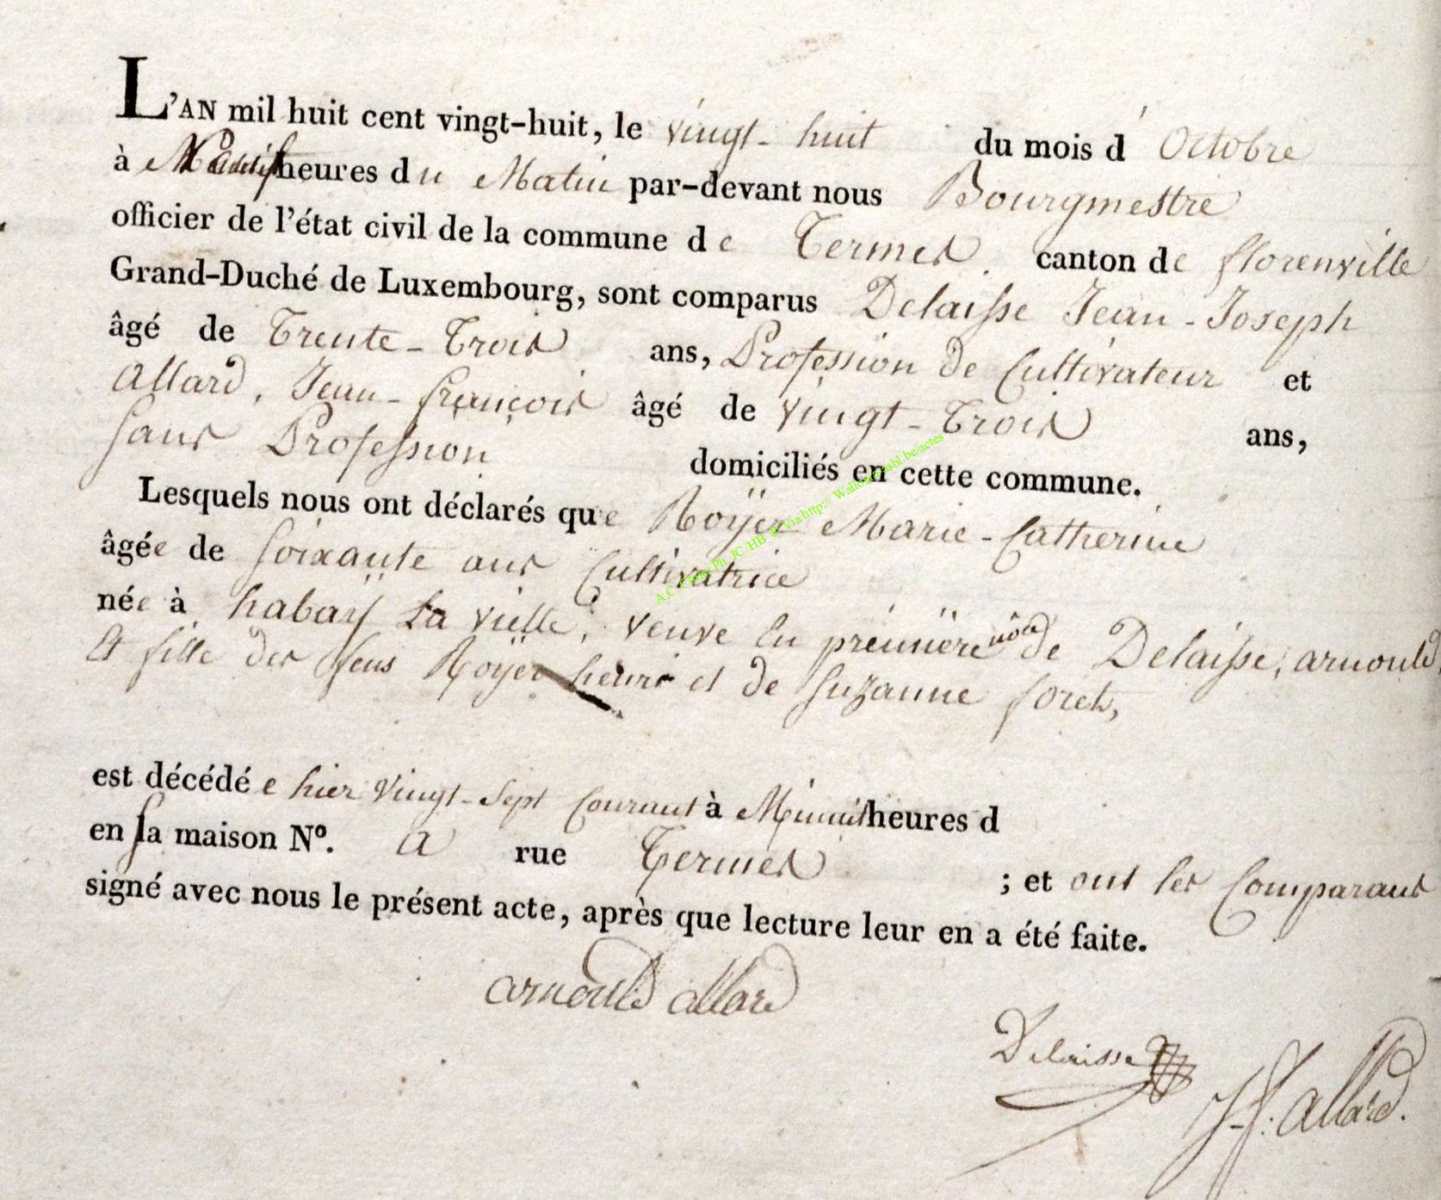 L'AN mil huit cent vingt-huit, le vingt-huit du mois d'Octobre
à heures du Matin par-devant nous Bourgmestre
officier de l'état civil de la commune de Termes. canton de florenville
Grand-Duché de Luxembourg, sont comparus Delaisse Jean-Joseph
âgé de Trente-Trois ans, Profession de Cultivateur et
allard, Jean-françois âgé de vingt-Trois ans,
sans Profession domiciliés en cette commune.
Lesquels nous ont déclarés que Roÿer Marie-Catherine
âgée de soixante ans Cultivatrice
née à habaÿ la vielle, veuve En prémière nôce de Delaisse, arnould,
Et fille des feus Roÿer henri et de Suzanne foret,
est décédée hier vingt-sept Courant à Minuit heures d
en sa maison N°. a rue Termes ; et ont les Comparans
signé avec nous le présent acte, après que lecture leur en a été faite.
arnould allard
Delaisse
J-f. allard.